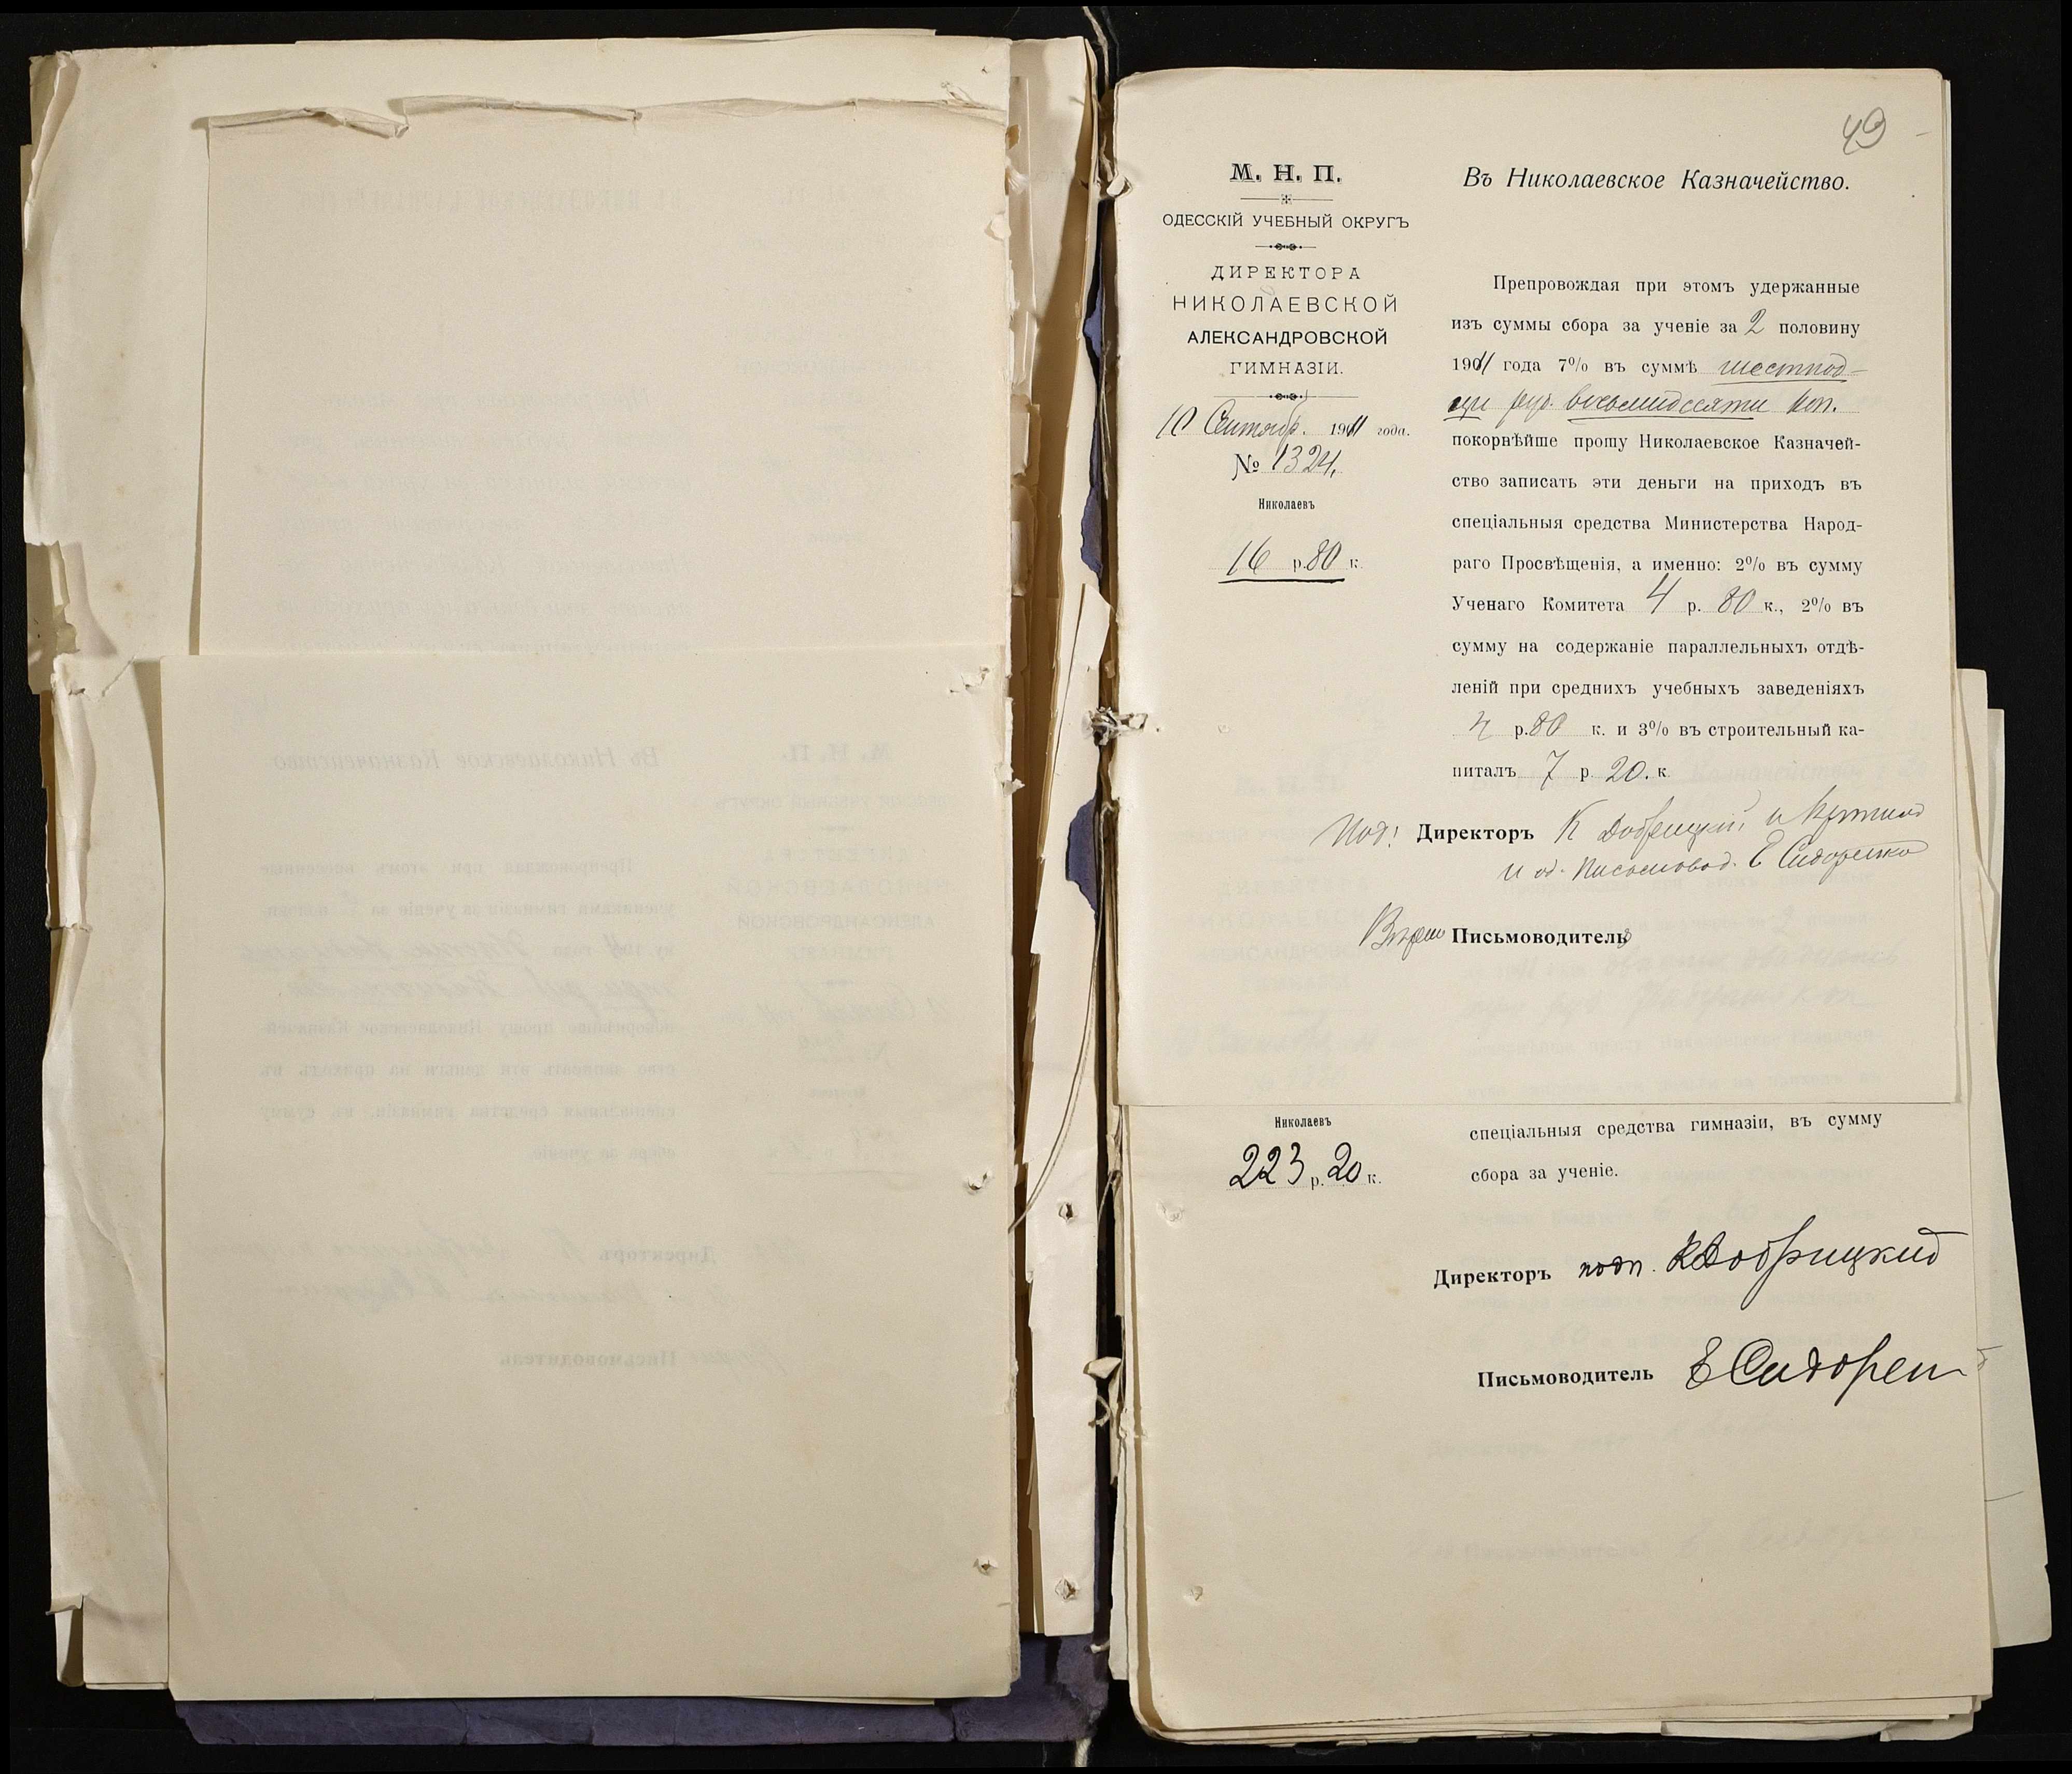 49
М. Н. П.
ОДЕССКІЙ УЧЕБНЫЙ ОКРУГЪ
ДИРЕКТОРА
НИКОЛАЕВСКОЙ
АЛЕКСАНДРОВСКОЙ
ГИМНАЗІИ.
10 Сентябр. 1911 года.
№ 1324.
Николаевъ
16 р. 80 к.
Въ Николаевское Казначейство.
Препровождая при этомъ удержанные
изъ суммы сбора за ученіе за 2 половину
1911 года 7% въ суммѣ шестнад-
цти руб. восьмидесяти коп.
покорнѣйше прошу Николаевское Казначей-
ство записать эти деньги на приходъ въ
спеціальныя средства Министерства Народ-
раго Просвѣщенія, а именно: 2% въ сумму
Ученаго Комитета 4 р. 80 к., 2% въ
сумму на содержаніе параллельныхъ отдѣ-
леній при среднихъ учебныхъ заведеніяхъ
4 р. 80 к. и 3% въ строительный ка-
питалъ 7 р. 20. к.
Под: Директоръ К Добрицкій
и об. Письмовод. Е Сидоренко
Вѣрно Письмоводитель
Николаевъ
223 р. 20 к.
спеціальныя средства гимназіи, въ сумму
сбора за ученіе.
Директоръ подп. К Добрицкій
Письмоводитель Е Сидорен